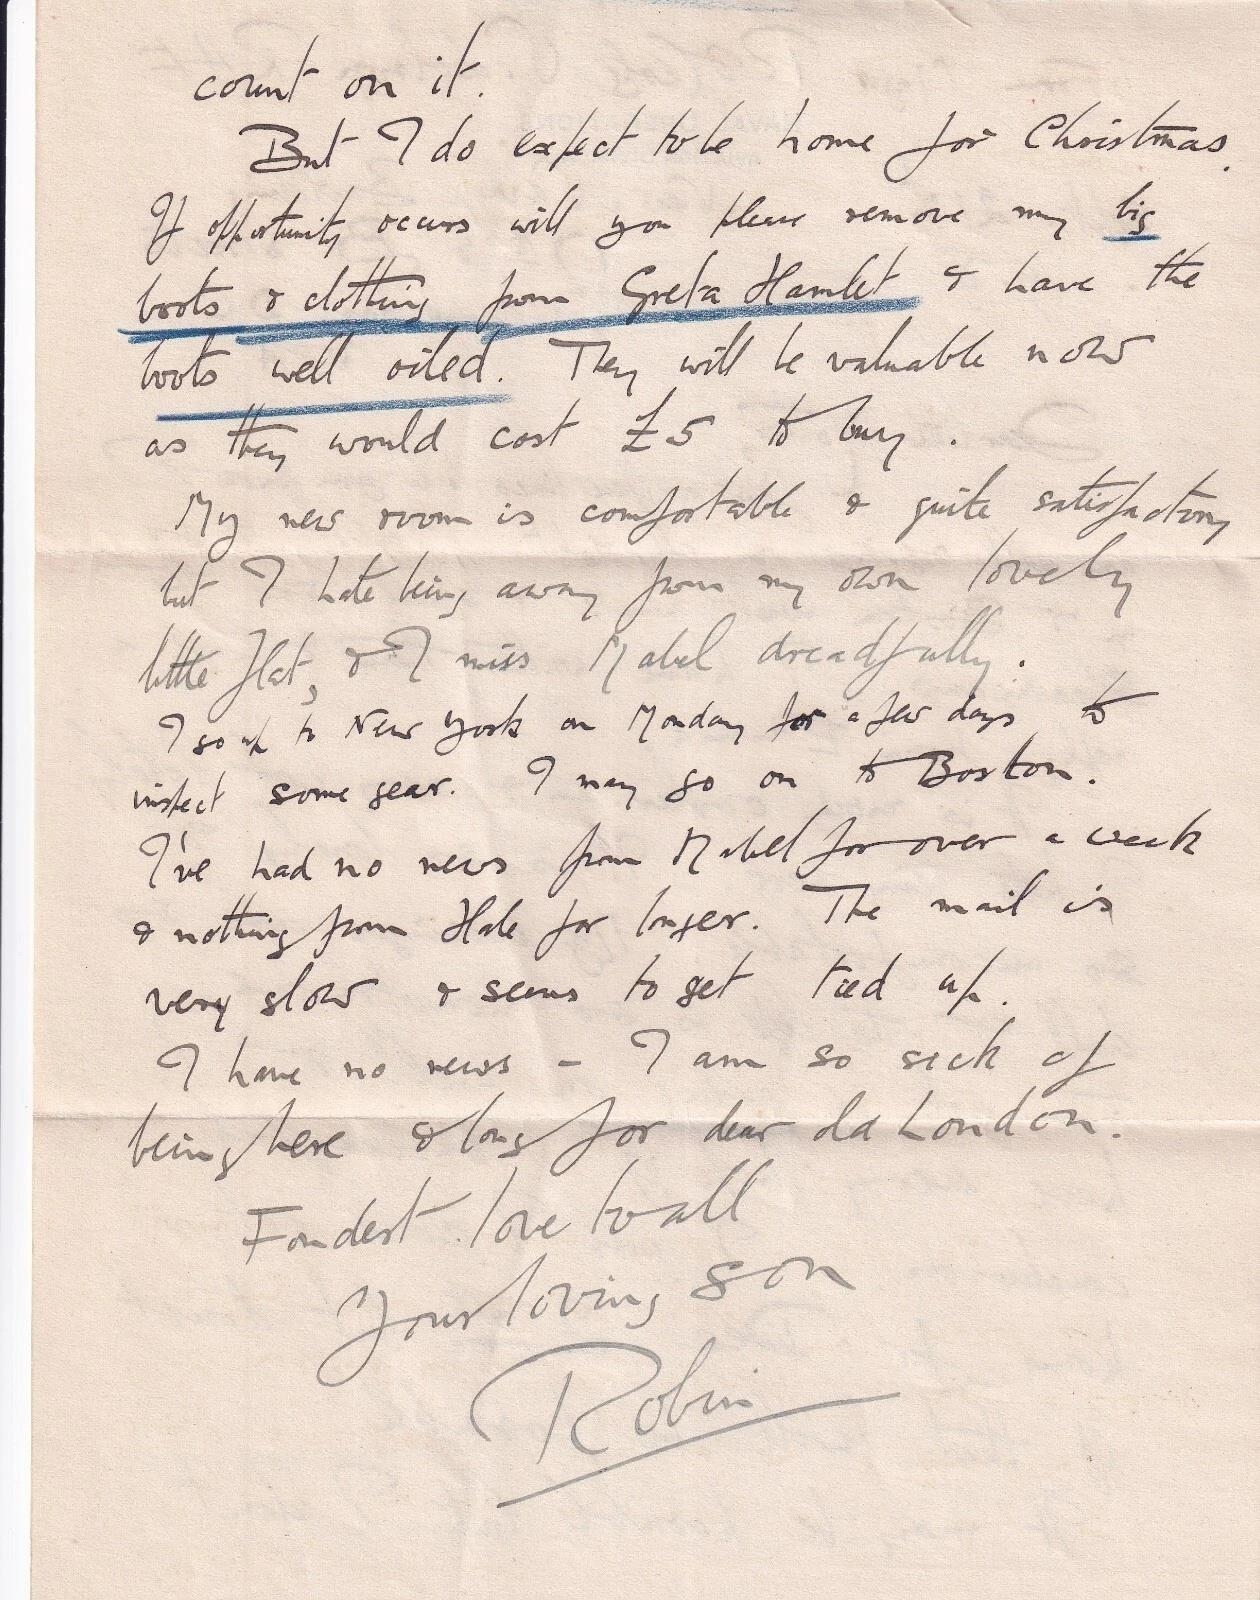 count on it.
But I do expect to be home for Christmas.
If opportunity occurs will you please remove my big
boots & clothing from Greta Hamlet & have the
boots well oiled. They will be valuable now
as they would cost £5 to buy.
My new room is comfortable & quite satisfactory
but I hate being away from my own lovely
little flat, & I miss Mabel dreadfully.
I go up to New York on Monday for a few days to
inspect some gear. I may go on to Boston.
I've had no news from Mabel for over a week
& nothing from Hale for longer. The mail is
very slow & seems to get tied up.
I have no news - I am so sick of
being here & long for dear old London.
Fondest love to all
Your loving son
Robin